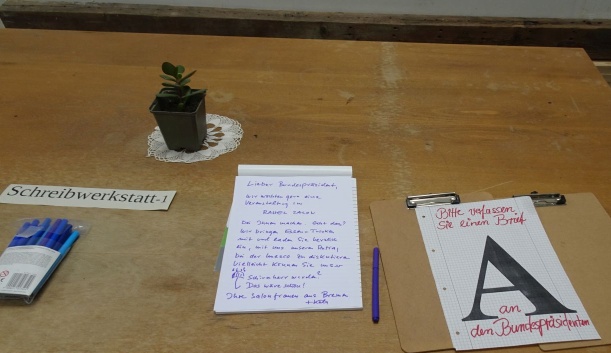 Schreibwerkstatt-1
Lieber Bundespräsident,
wir möchten gern eine
Veranstaltung im
RAHEL SALON
mit und laden Sie herzlich
ein, mit uns unsere
bei der Messe zu diskutieren
Vielleicht können Sie unser
Schirmherr werden?
↳ Das wäre schön!
Ihre Salonfrauen aus Bremen
+ Köln
Bitte verfassen
Sie einen Brief
A
an
den Bundespräsidenten